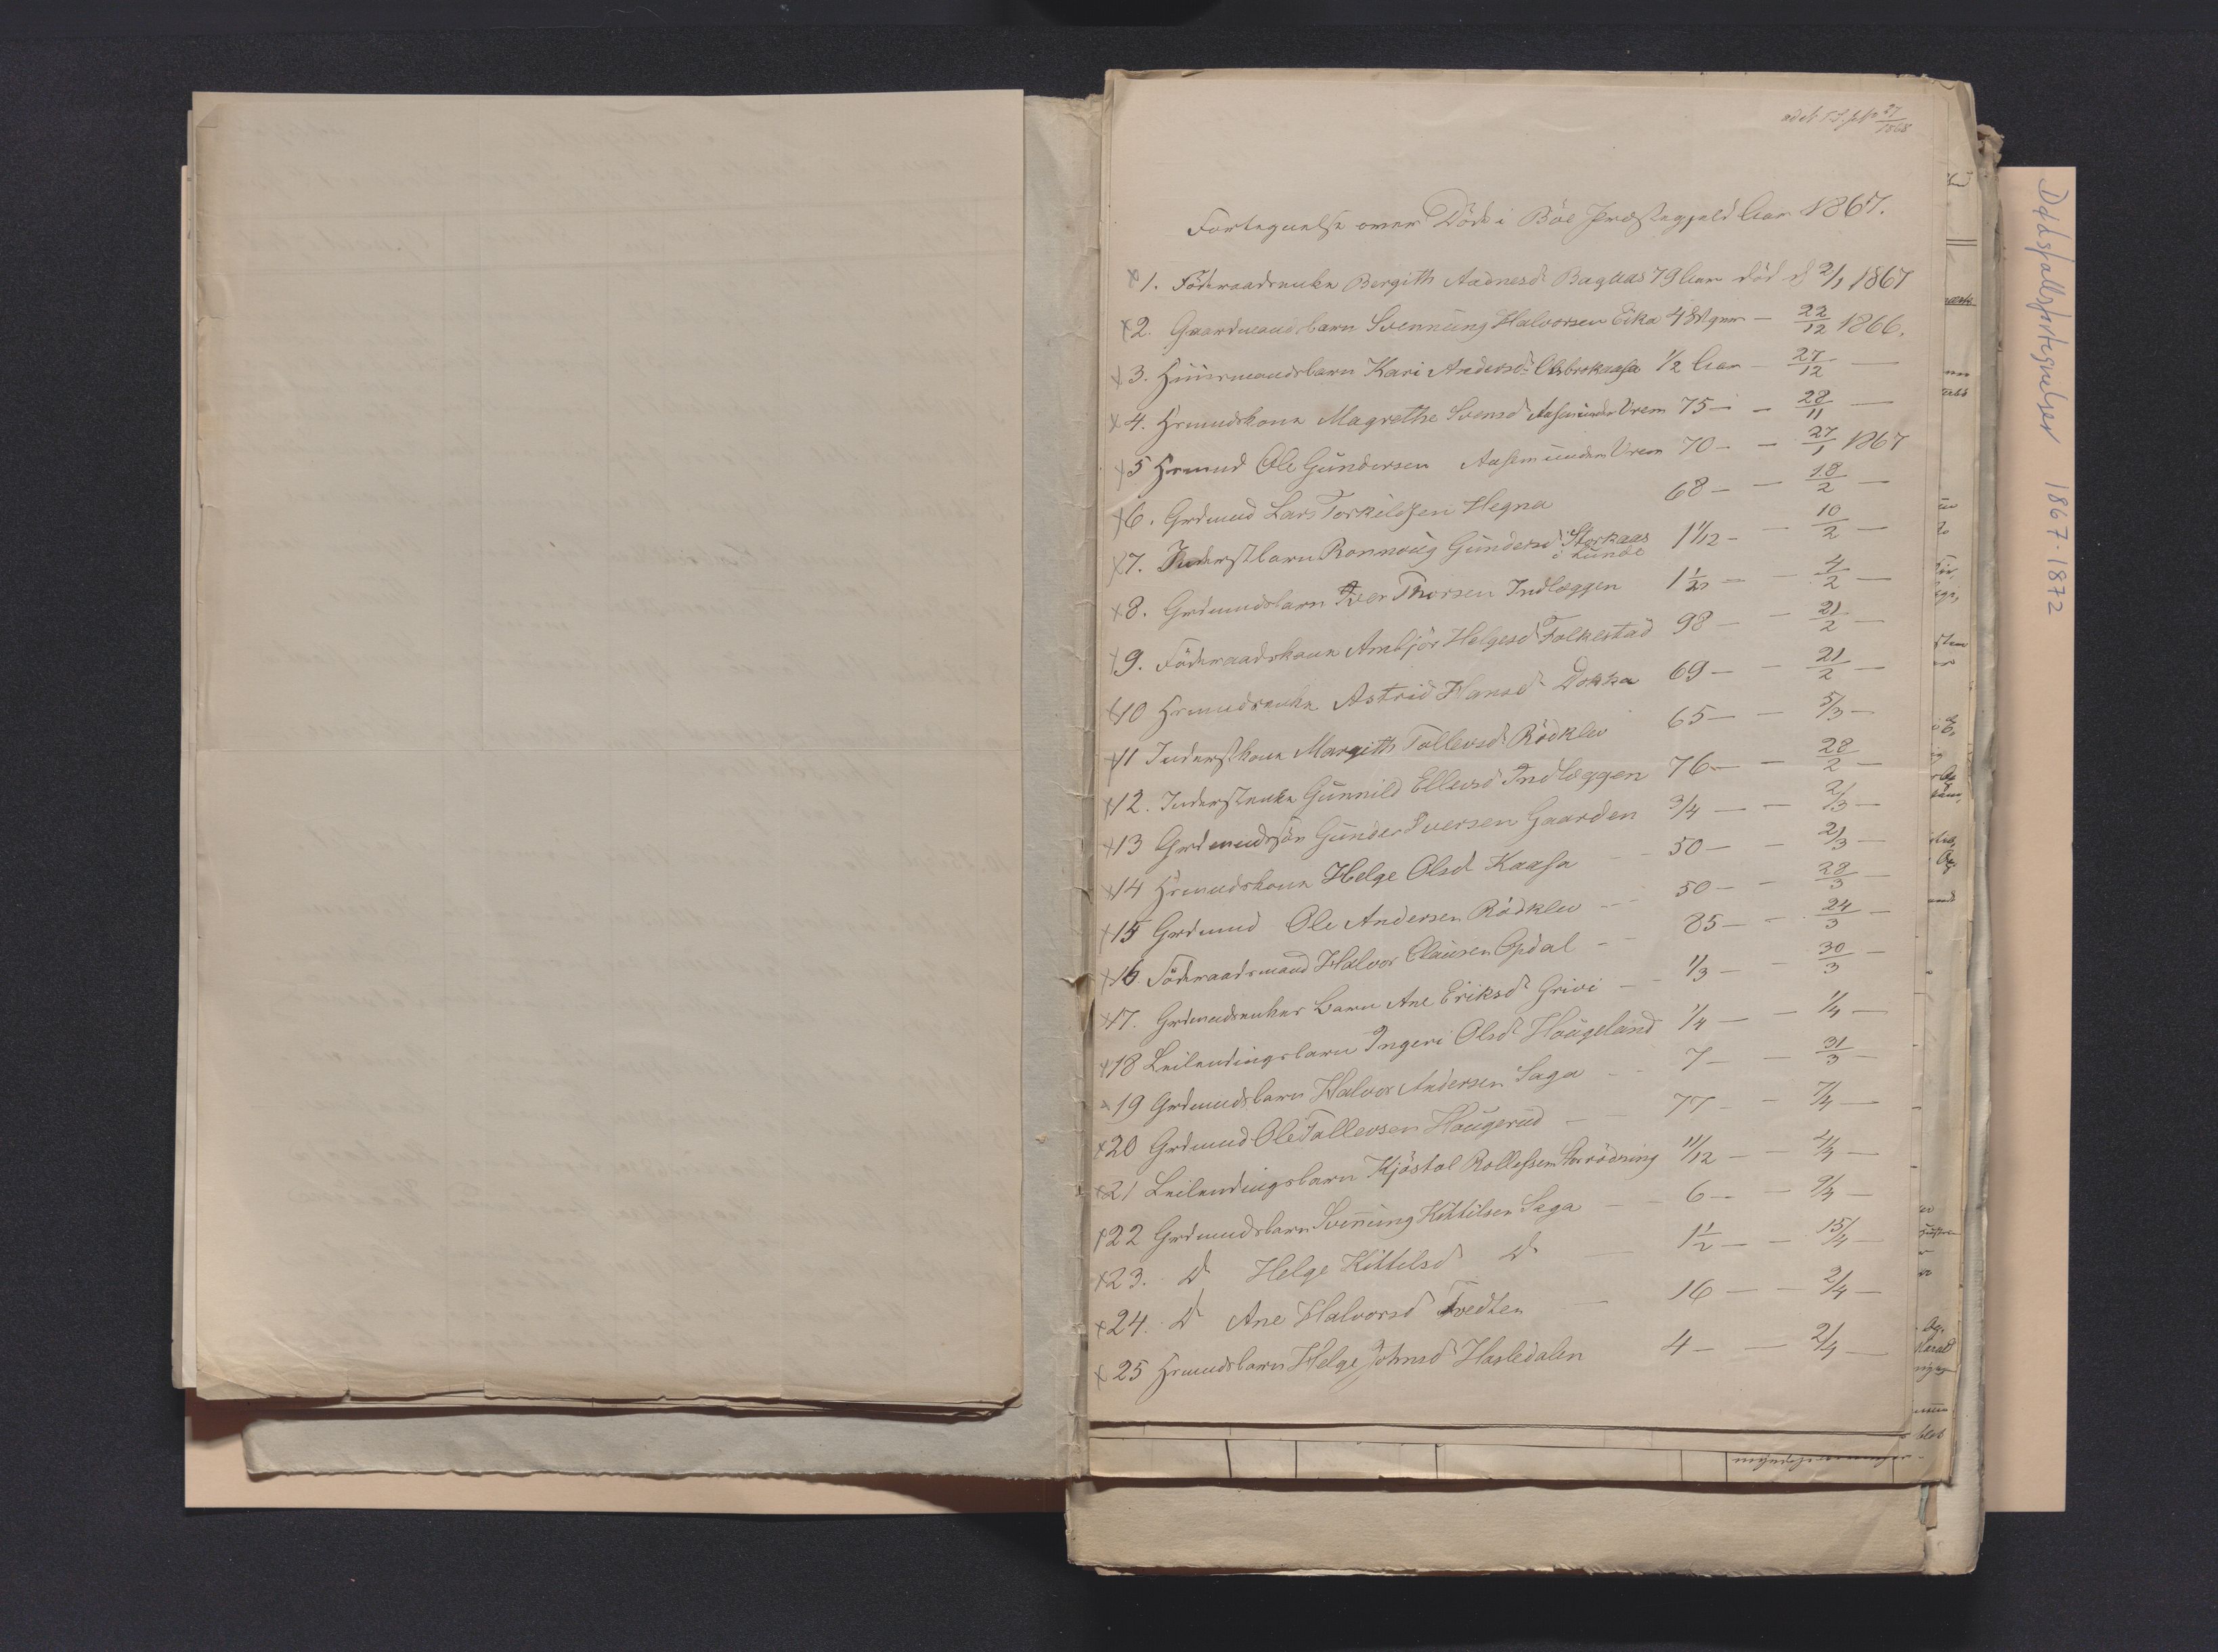 Fortegnelse over Døde i Böe Præstegjeld Aar 1867.
x 1. Föderaadsenke Bergith Aadnesd. Bagaas 79 Aar död d. 2/1 1867
x 2. Gaardmandsbarn Svennung Halvorsen Eika 4 Dage — 22/12 1866.
x 3. Huusmandsbarn Kari Andersd. Olsbrokaasa 1/2 Aar — 27/12 —
x 4. Hrmndskone Magrethe Svensd. Aasen under Vrem 75 — — 28/11 —
x 5 Hrmnd Ole Gundersen Aasen under Vrem 70 — — 27/1 1867
x 6. Grdmnd Lars Torkildsen Hegna 68 — — 18/2 —
x 7. Inderstbarn Ronnoug Gundersd. Storkaas i Lunde 1 1/12 — — 10/2 —
x 8. Grdmndsbarn Iver Thorsen Indlæggen 1 1/2 — — 4/2 —
x 9. Föderaadskone Ambjör Helgesd. Folkestad 98 — — 21/2 —
x 10 Hrmndsenke Astrid Hansd. Dokka 69 — — 21/2 —
x 11 Inderstkone Margith Tollevsd. Rödklev 65 — — 5/3 —
x 12. Inderstenke Gunnild Ellevsd. Indlæggen 76 — — 28/2 —
x 13 Grdmndsön Gunder Iversen Gaarden 3/4 — — 2/3 —
x 14 Hrmndskone Helge Olsd. Kaasa — 50 — — 2/3 —
x 15 Grdmnd Ole Andersen Rödklev — 50 — — 28/3 —
x 16 Föderaadsmand Halvor Clausen Opdal — 85 — — 24/3 —
x 17. Grdmndsenkes Barn Ane Eriksd. Grivi — 1/3 — — 30/3 —
x 18 Leilendingsbarn Ingeri Olsd. Haugeland 1/4 — — 1/4 —
x 19 Grdmndsbarn Halvor Andersen Saga — 7 — — 31/3 —
x 20 Grdmnd Ole Tollevsen Haugerud — 77 — — 7/4 —
x 21 Leilendingsbarn Kjöstol Rollefsen 11/12 — — 4/4 —
x 22 Grdmndsbarn Svennung Kittilsen Saga — 6 — — 9/4 —
x 23. D. Helge Kittilsd. D. — 1 1/2 — — 15/4 —
x 24. D. Ane Halvorsd. Tvedten — 16 — — 2/4 —
x 25 Hrmndsbarn Helge Johnsd. Hasledalen 4 — — 2/4 —
Dødsfallsfortegnelser 1867-1872